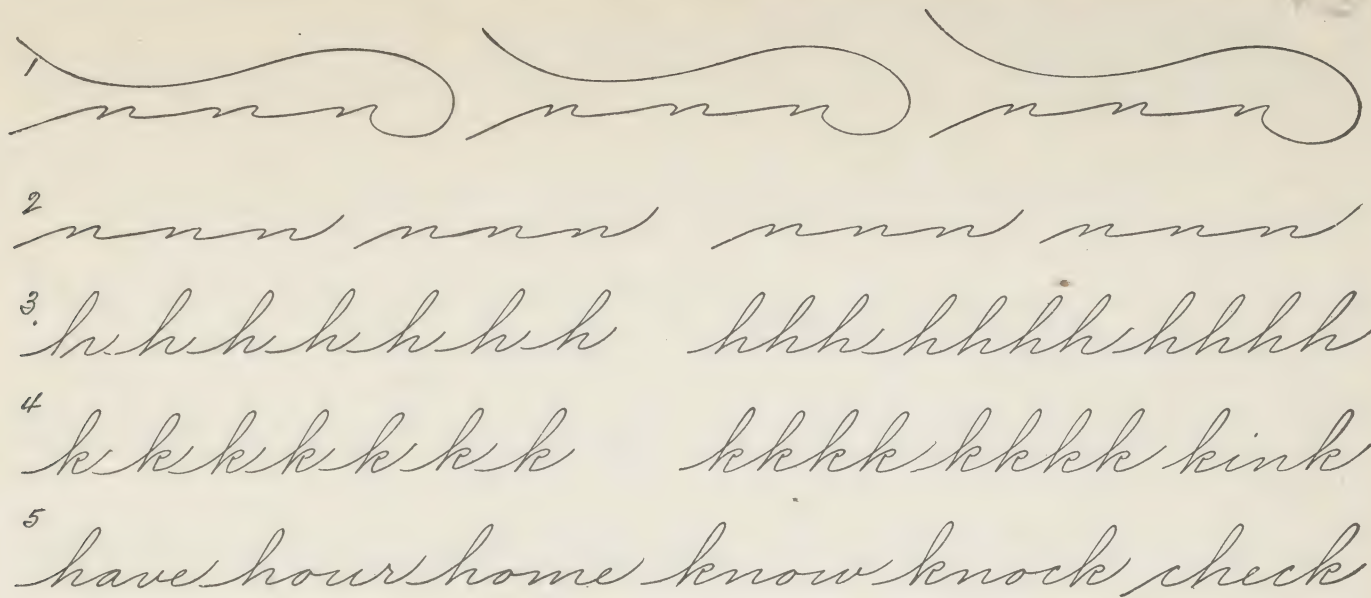 1 n n n n n n n n n
2 n n n n n n n n n n n n
3. h h h h h h h hhh hhhh hhhh
4 k k k k k k k kkkk kkkk kink
5 have hour home know knock check